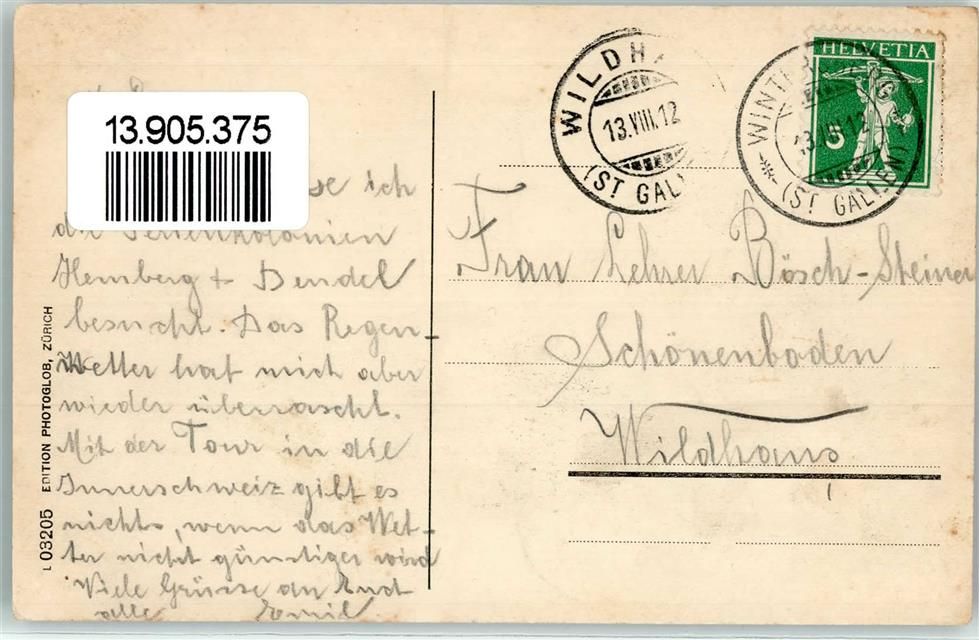 WILDHA
13.VIII.12
(ST GAL
HELVETIA
5
WINT
13.VIII.12
(ST GALLEN)
13.905.375
se ich
die Ferienkolonien
Hemberg + Bendel
besucht. Das Regen-
wetter hat mich aber
wieder überrascht.
Mit der Tour in die
Innerschweiz gibt es
nichts, wenn das Wet-
ter nicht günstiger wird
Viele Grüsse an Euch
alle Emil
Frau Lehrer Bösch-Steiner
Schönenboden
Wildhaus
L 03205 EDITION PHOTOGLOB, ZÜRICH